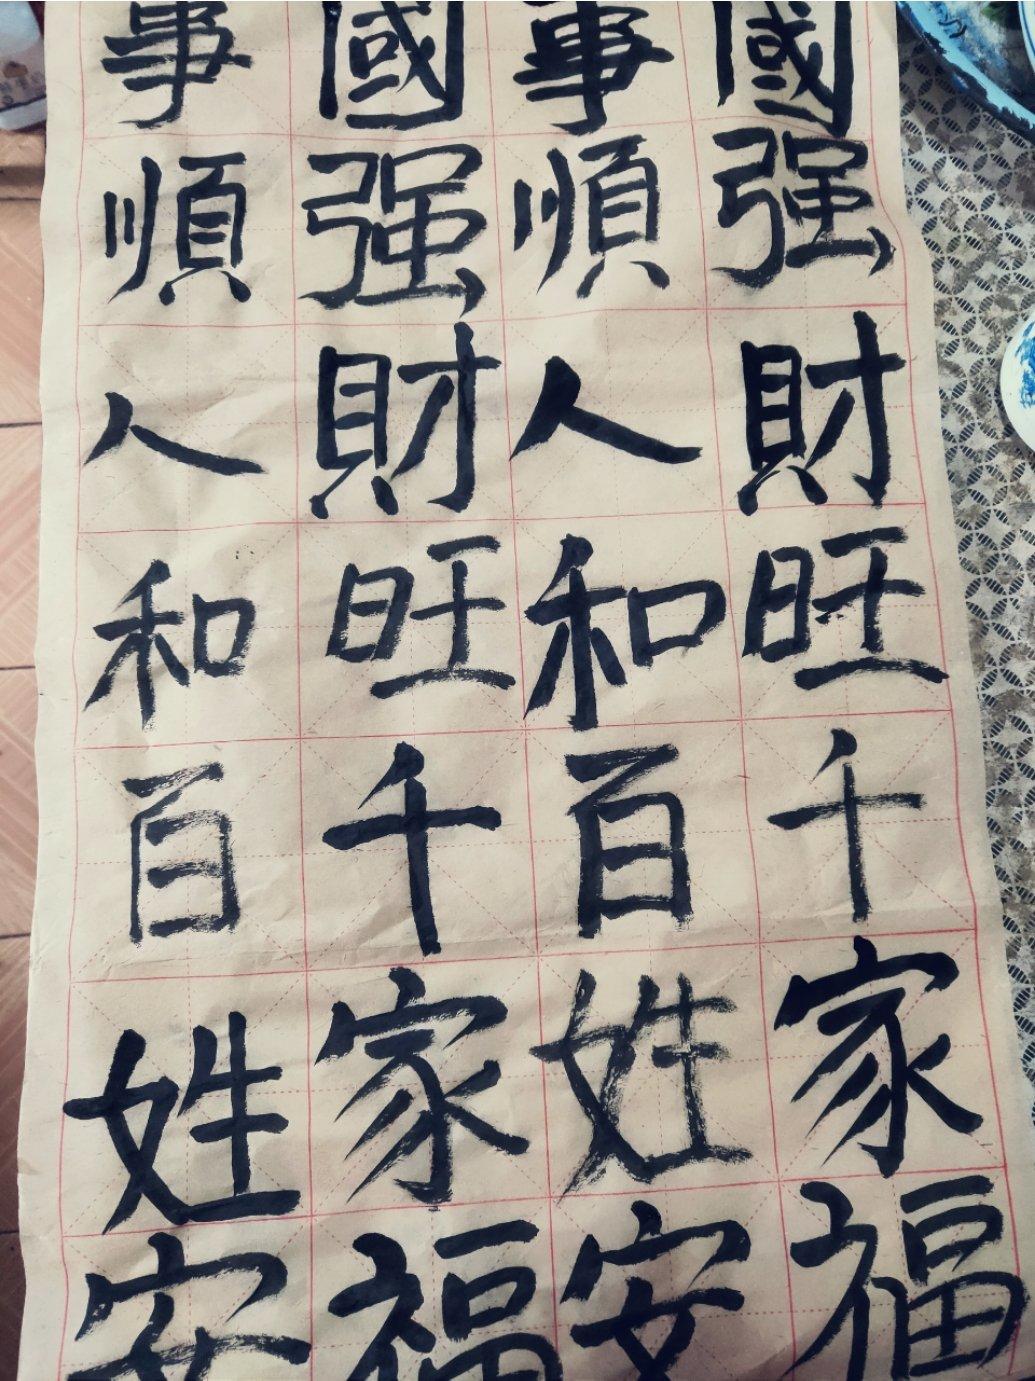 國强財旺千家福
事順人和百姓安
國强財旺千家福
事順人和百姓安